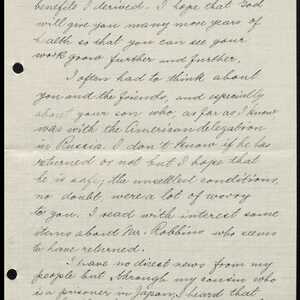 benefits I derived. I hope that God
will give you many more years of
health so that you can see your
work grow further and further.
I often had to think about
you and the friends, and especially
about your son who, as far as I know
was with the American delegation
in Russia. I don't know if he has
returned or not but I hope that
he is safe, the unsettled conditions,
no doubt, were a lot of worry
to you. I read with interest some
items about Mr. Robbins who seems
to have returned.
I have no direct news from my
people but through my cousin who
is a prisoner in Japan, I heard that